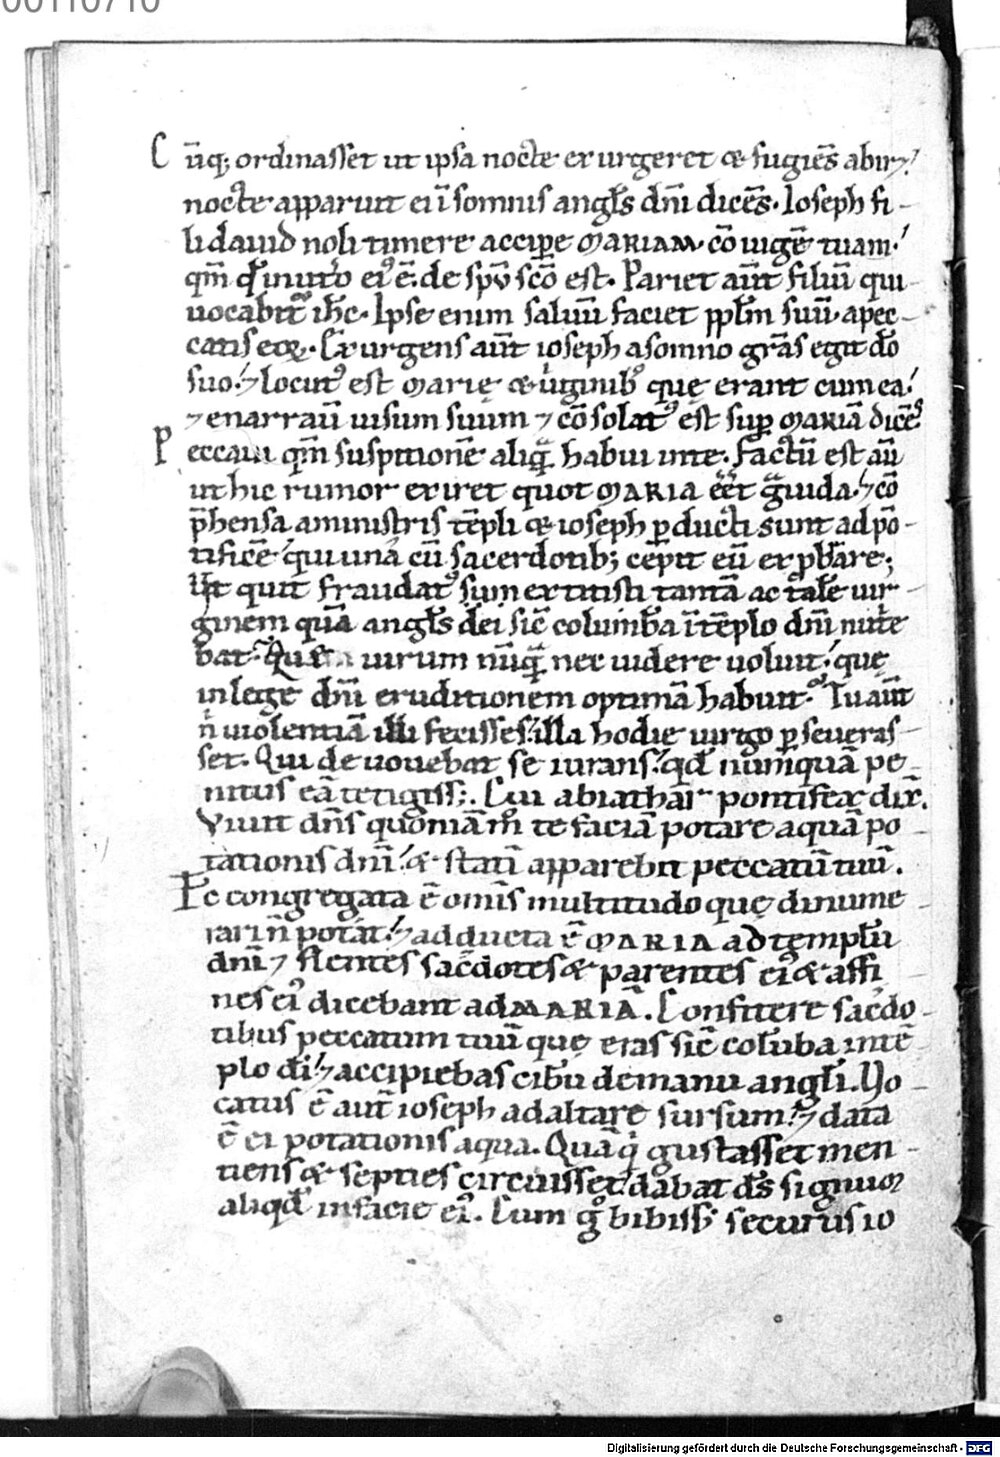 00110710
C ūq; ordinasset ut ipsa nocte exurgeret & fugiēs abir&
nocte apparuit ei ī somnis angłs dn̄i dicēs. Ioseph fi-
li dauid noli timere accipe MARIAM. cōiugē tuam.
qm̄ qđ in utō ei᷒ ē. de spū scō est. Pariet aūt filiū qui
uocabit᷒ ih̄c. Ipse enim saluū faciet ppłm suū. apec-
catis eoꝝ. Exurgens aūt ioseph asomno grās egit dō
suo. ⁊ locut᷒ est marię & uirginib᷒ quę erant cum ea.
⁊ enarrauū uisum suum ⁊ cōsolat᷒ est sup MARIĀ dicēs
P eccaui qm̄ suspitionē aliquā habui inte. Factū est aū
ut hic rumor exiret quot MARIA eēt grauida. ⁊ cō
p̄hensa aministris tēpli & ioseph ꝑducti sunt adpō-
tificē qui una cū sacerdotib; cepit eū exp̱bare;
Ut quit fraudat᷒ sum extitisti tantā ac talē uir-
ginem quā angłs dei sic̄ columba ī tēplo dn̄i nutie
bat. Quę uirum nūquā nec uidere uoluit. quę
in lege dn̄i eruditionem optimā habuit. Tu aūt
n̄ uiolentiā illi fecisses. illa hodie uirgo ꝑseueras-
set. Qui deuouebat se iurans. qđ numquā pe-
nitus eā tetigiss;. Cui abiathar pontifex dix̄.
Viuit dn̄s quoniām te faciā potare aquā po-
tationis dn̄i. & statī apparebit peccatū tuū.
Tc̄ congregata ē omīs multitudo quę dinume
rari n̄ potat. ⁊ adducta ē MARIA ad templū
dn̄i ⁊ flentes sac̄dotes & parentes ei᷒ & affi
nes ei᷒ dicebant ad MARIĀ. Confitere sac̄do-
tibus peccatum tuū quę eras sic̄ colūba intē
plo dī. ⁊ accipiebas cibū de manu angłi. Uo-
catus ē aūt ioseph ad altare sursum. ⁊ data
ē ei potationis aqua. Quā qi gustasset men-
tiens & septies circuisset dabat d̄s signum
aliqđ in facie ei᷒. Cum g° bibiss& securus io
Digitalisierung gefördert durch die Deutsche Forschungsgemeinschaft - DFG